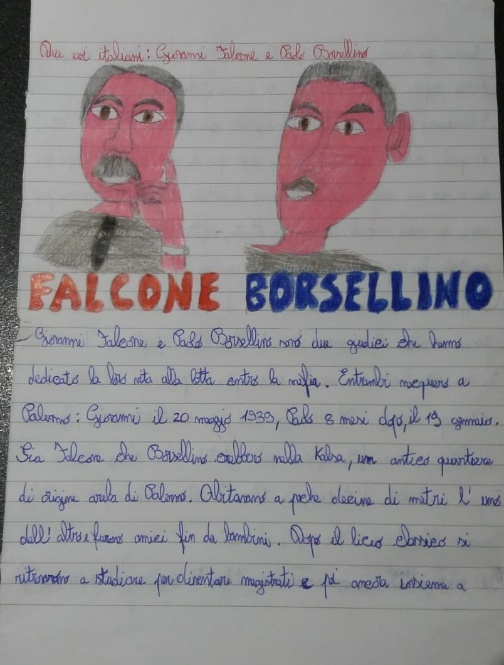 Due eroi italiani: Giovanni Falcone e Paolo Borsellino
FALCONE BORSELLINO
Giovanni Falcone e Paolo Borsellino sono due giudici che hanno
dedicato la loro vita alla lotta contro la mafia. Entrambi nacquero a
Palermo: Giovanni il 20 maggio 1939, Paolo 8 mesi dopo, il 19 gennaio.
Sia Falcone che Borsellino crebbero nella Kalsa, un antico quartiere
di origine araba di Palermo. Abitavano a poche decine di metri l'uno
dell'altro e furono amici fin da bambini. Dopo il liceo classico si
ritrovarono a studiare per diventare magistrati e poi ancora insieme a